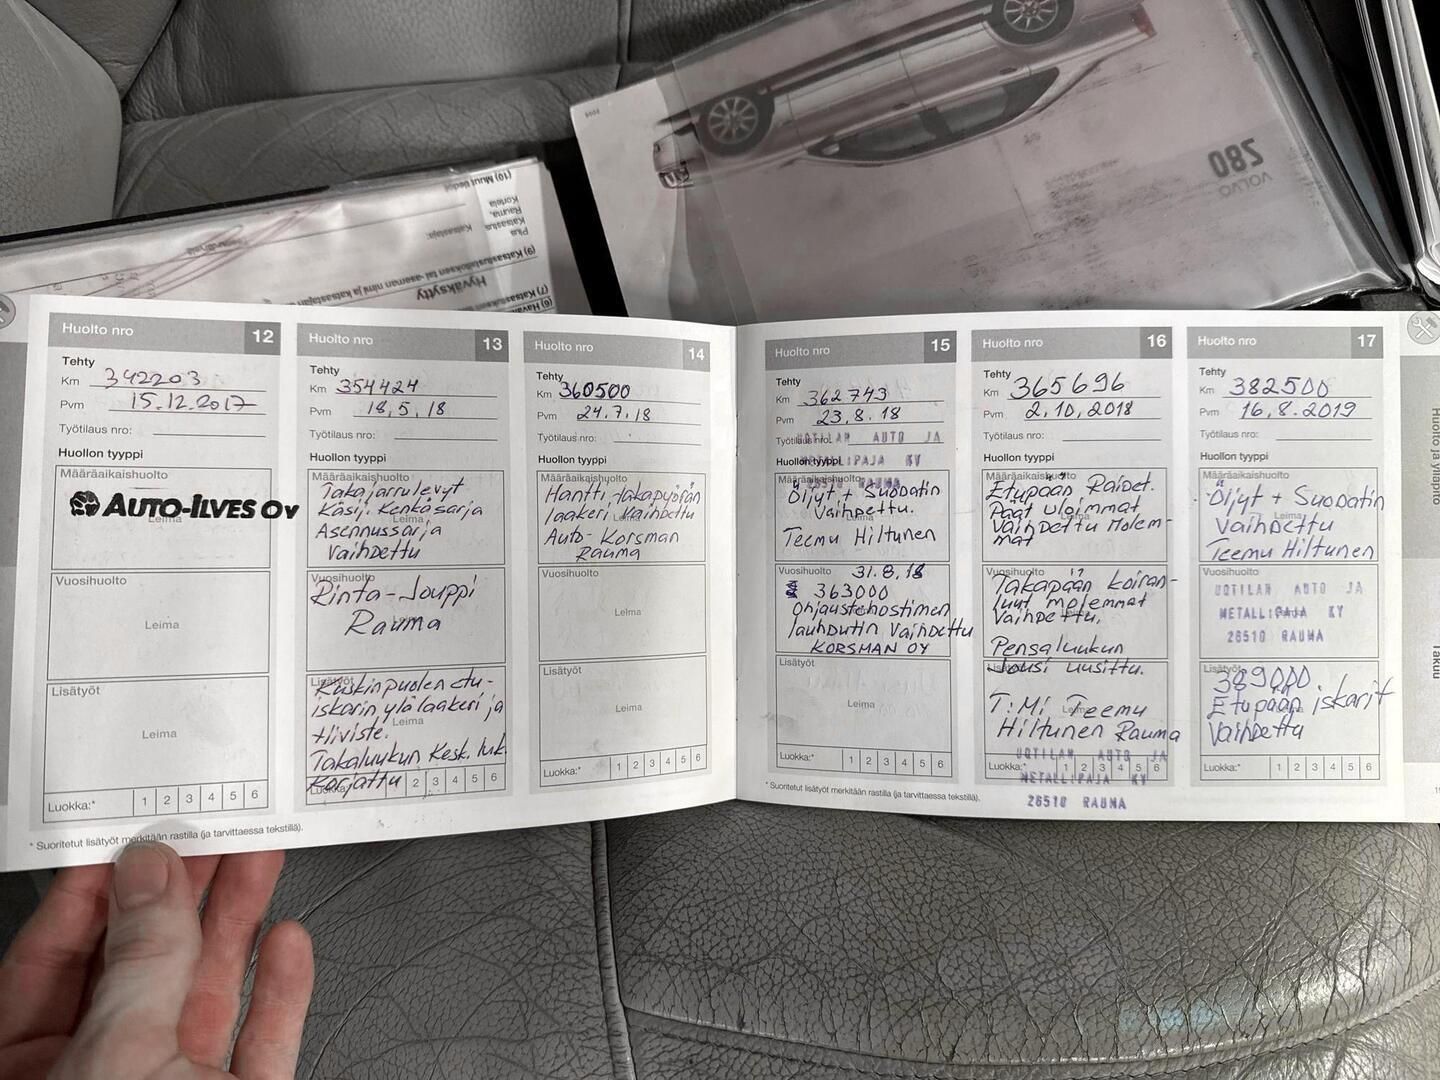 VOLVO
S80
(10) Muut tiedot
Plus
Katsastus
Rauma,
Kortela
Katsastaja:
Hyväksytty
Huolto nro 12
Tehty
Km 342203
Pvm 15.12.2017
Työtilaus nro:
Huollon tyyppi
Määräaikaishuolto
AUTO-ILVES OY
Leima
Vuosihuolto
Leima
Lisätyöt
Leima
Luokka:* 1 2 3 4 5 6
* Suoritetut lisätyöt merkitään rastilla (ja tarvittaessa tekstillä).
Huolto nro 13
Tehty
Km 354424
Pvm 18.5.18
Työtilaus nro:
Huollon tyyppi
Määräaikaishuolto
Takajarrulevyt
Käsij. Kenkäsarja
Leima
Asennussarja
Vaihdettu
Vuosihuolto
Rinta-Jouppi
Rauma
Lisätyöt
Kuskin puolen etu-
iskarin ylälaakeri ja
Leima
tiiviste.
Takaluukun Kesk. luk.
Korjattu
Luokka:* 2 3 4 5 6
Huolto nro 14
Tehty
Km 360500
Pvm 24.7.18
Työtilaus nro:
Huollon tyyppi
Määräaikaishuolto
Hantti, takapyörän
laakeri Vaihdettu
Leima
Auto-Korsman
Rauma
Vuosihuolto
Leima
Lisätyöt
Leima
Luokka:* 1 2 3 4 5 6
Huolto nro 15
Tehty
Km 362743
Pvm 23.8.18
Työtilaus nro:
UOTILAN AUTO JA
METALLIPAJA KY
26510 RAUMA
Huollon tyyppi
Määräaikaishuolto
Öljyt + Suodatin
Vaihdettu.
Leima
Teemu Hiltunen
Vuosihuolto 31.8.18
363000
Ohjaustehostimen
lauhdutin Vaihdettu
KORSMAN OY
Lisätyöt
Leima
Luokka:* 1 2 3 4 5 6
* Suoritetut lisätyöt merkitään rastilla (ja tarvittaessa tekstillä).
Huolto nro 16
Tehty
Km 365696
Pvm 2.10.2018
Työtilaus nro:
Huollon tyyppi
Määräaikaishuolto
Etupään Raidet.
Päät uloimmat
Leima
Vaihdettu Molem-
mat
Vuosihuolto
Takapään koiran-
luut molemmat
Vaihdettu.
Pensaluukun
Lisätyöt
Jousi uusittu.
T:Mi Teemu
Leima
Hiltunen Rauma
UOTILAN AUTO JA
METALLIPAJA KY
26510 RAUMA
Luokka:* 1 2 3 4 5 6
Huolto nro 17
Tehty
Km 382500
Pvm 16.8.2019
Työtilaus nro:
Huollon tyyppi
Määräaikaishuolto
Öljyt + Suodatin
Leima
Vaihdettu
Teemu Hiltunen
Vuosihuolto
UOTILAN AUTO JA
METALLIPAJA KY
26510 RAUMA
Lisätyöt
389000
Etupään iskarit
Leima
Vaihdettu
Luokka:* 1 2 3 4 5 6
Huolto ja ylläpito
Takuu